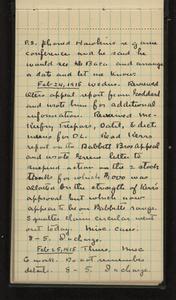 P.S. phoned Hawkins re game
conference and he said he
would see De Baca and arrange
a date and let me know.
Feb. 24, 1915 Wednes. Received
appeal report from Goddard
and wrote him for additional
information. Received Mc-
Trespass, Datil, & dict.
for D.L. Read Kerr's
report on the Babbitt Bros appeal
and wrote letter to
suspend action on the 2 stock
tanks for which $1,000 was
allowed on the strength of Kerr's
approval but which now
appears to be on Babbitts range.
claim circular went
out today. Misc. cons.
8-5. In charge.
Feb 25, 1915. Thurs. Misc
work. Do not remember
detail. 8-5. In charge.